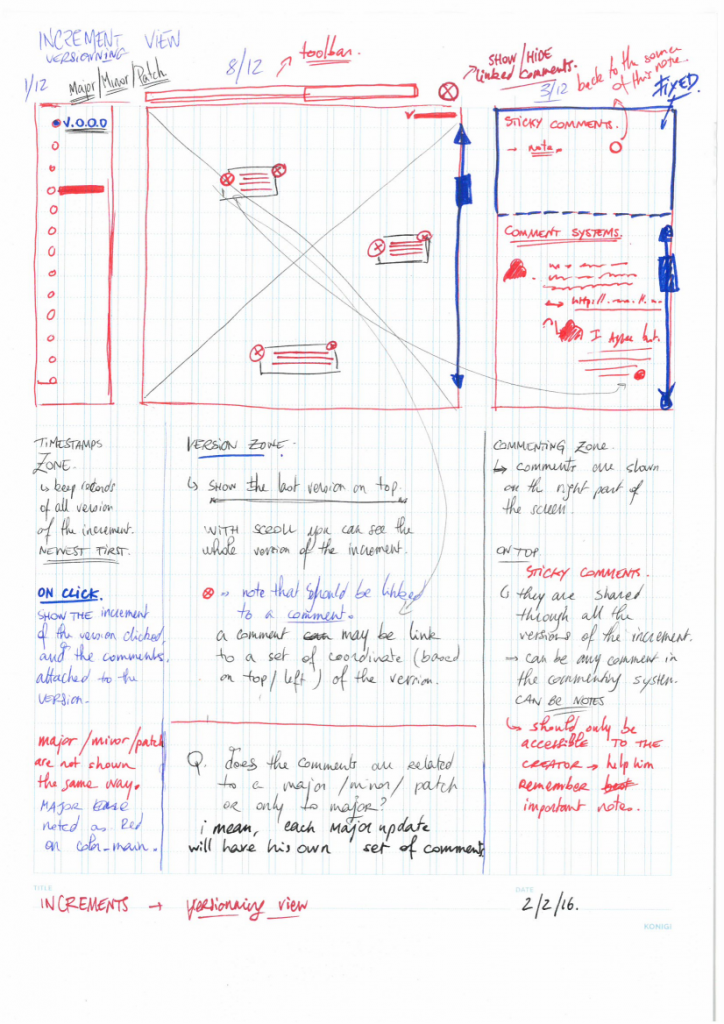 INCREMENT VIEW
VERSIONNING
1/12
Major/Minor/Patch
8/12
toolbar.
SHOW/HIDE
linked comments.
3/12
back to the source
of this note.
FIXED
V.0.0.0
STICKY COMMENTS.
→ note.
COMMENT SYSTEMS.
I Agree but.
TIMESTAMPS
ZONE.
↳ keep records
of all version
of the increment.
NEWEST FIRST.
ON CLICK.
SHOW THE increment
of the version clicked,
and the comments,
attached to the
VERSION.
major/minor/patch
are not shown
the same way.
MAJOR
noted as Red
on color-main.
VERSION ZONE.
↳ SHOW the last version on top.
WITH SCROLL you can see the
whole version of the increment.
note that should be linked
to a comment.
a comment can may be link
to a set of coordinate (based
on top/left) of the version.
Q. Does the comments are related
to a major/minor/patch
or only to major?
i mean, each Major update
will have his own set of comments
COMMENTING Zone.
↳ comments are shown
on the right part of
the screen.
ON TOP
STICKY COMMENTS.
↳ they are shared
through all the
versions of the increment.
→ can be any comment in
the commenting system.
CAN BE NOTES
↳ should only be
accessible TO THE
CREATOR → help him
Remember
important notes.
TITLE
INCREMENTS → versionning view
DATE
2/2/16.
KONIGI